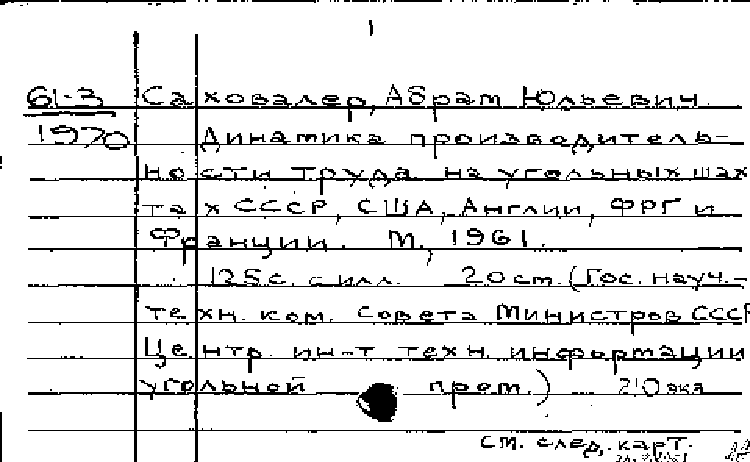 1
61-3 Саховалер, Абрам Юльевич.
1970 Динамика производитель-
ности труда на угольных шах
тах СССР, США, Англии, ФРГ и
Франции. М., 1961.
125с. с илл. 20 см. (Гос. науч.-
техн. ком. Совета Министров СССР
Центр. ин-т техн. информации
угольной пром.) 210 экз
см. след. карт.